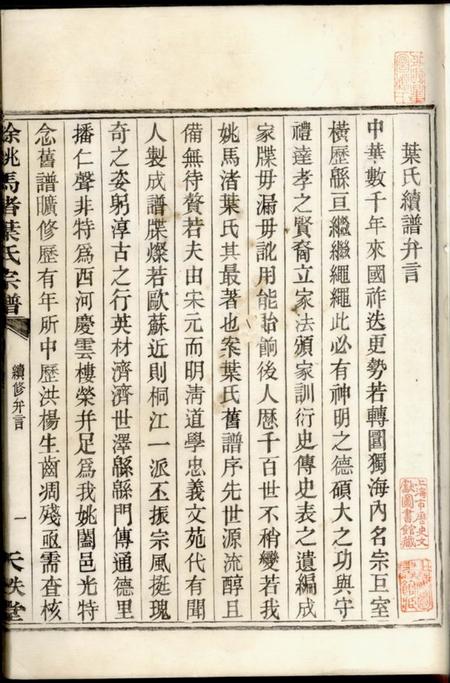 葉氏續譜弁言
中華數千年來國祚迭更勢若轉圜獨海內名宗巨室
橫歷緜亘繼繼繩繩此必有神明之德碩大之功與守
禮達孝之賢裔立家法頒家訓衍史傳史表之遺編成
家牒毋漏毋訛用能貽餉後人歷千百世不稍變若我
姚馬渚葉氏其最著也案葉氏舊譜序先世源流醇且
備無待贅若夫由宋元而明淸道學忠義文苑代有聞
人製成譜牒燦若歐蘇近則桐江一派丕振宗風挺瑰
奇之姿躬淳古之行英材濟濟世澤緜緜門傳通德里
播仁聲非特爲西河慶雲樓榮幷足爲我姚闔邑光特
念舊譜曠修歷有年所中歷洪楊生齒凋殘亟需查核
餘姚馬渚葉氏宗譜
續修弁言
一
上海市歷史文獻圖書館藏